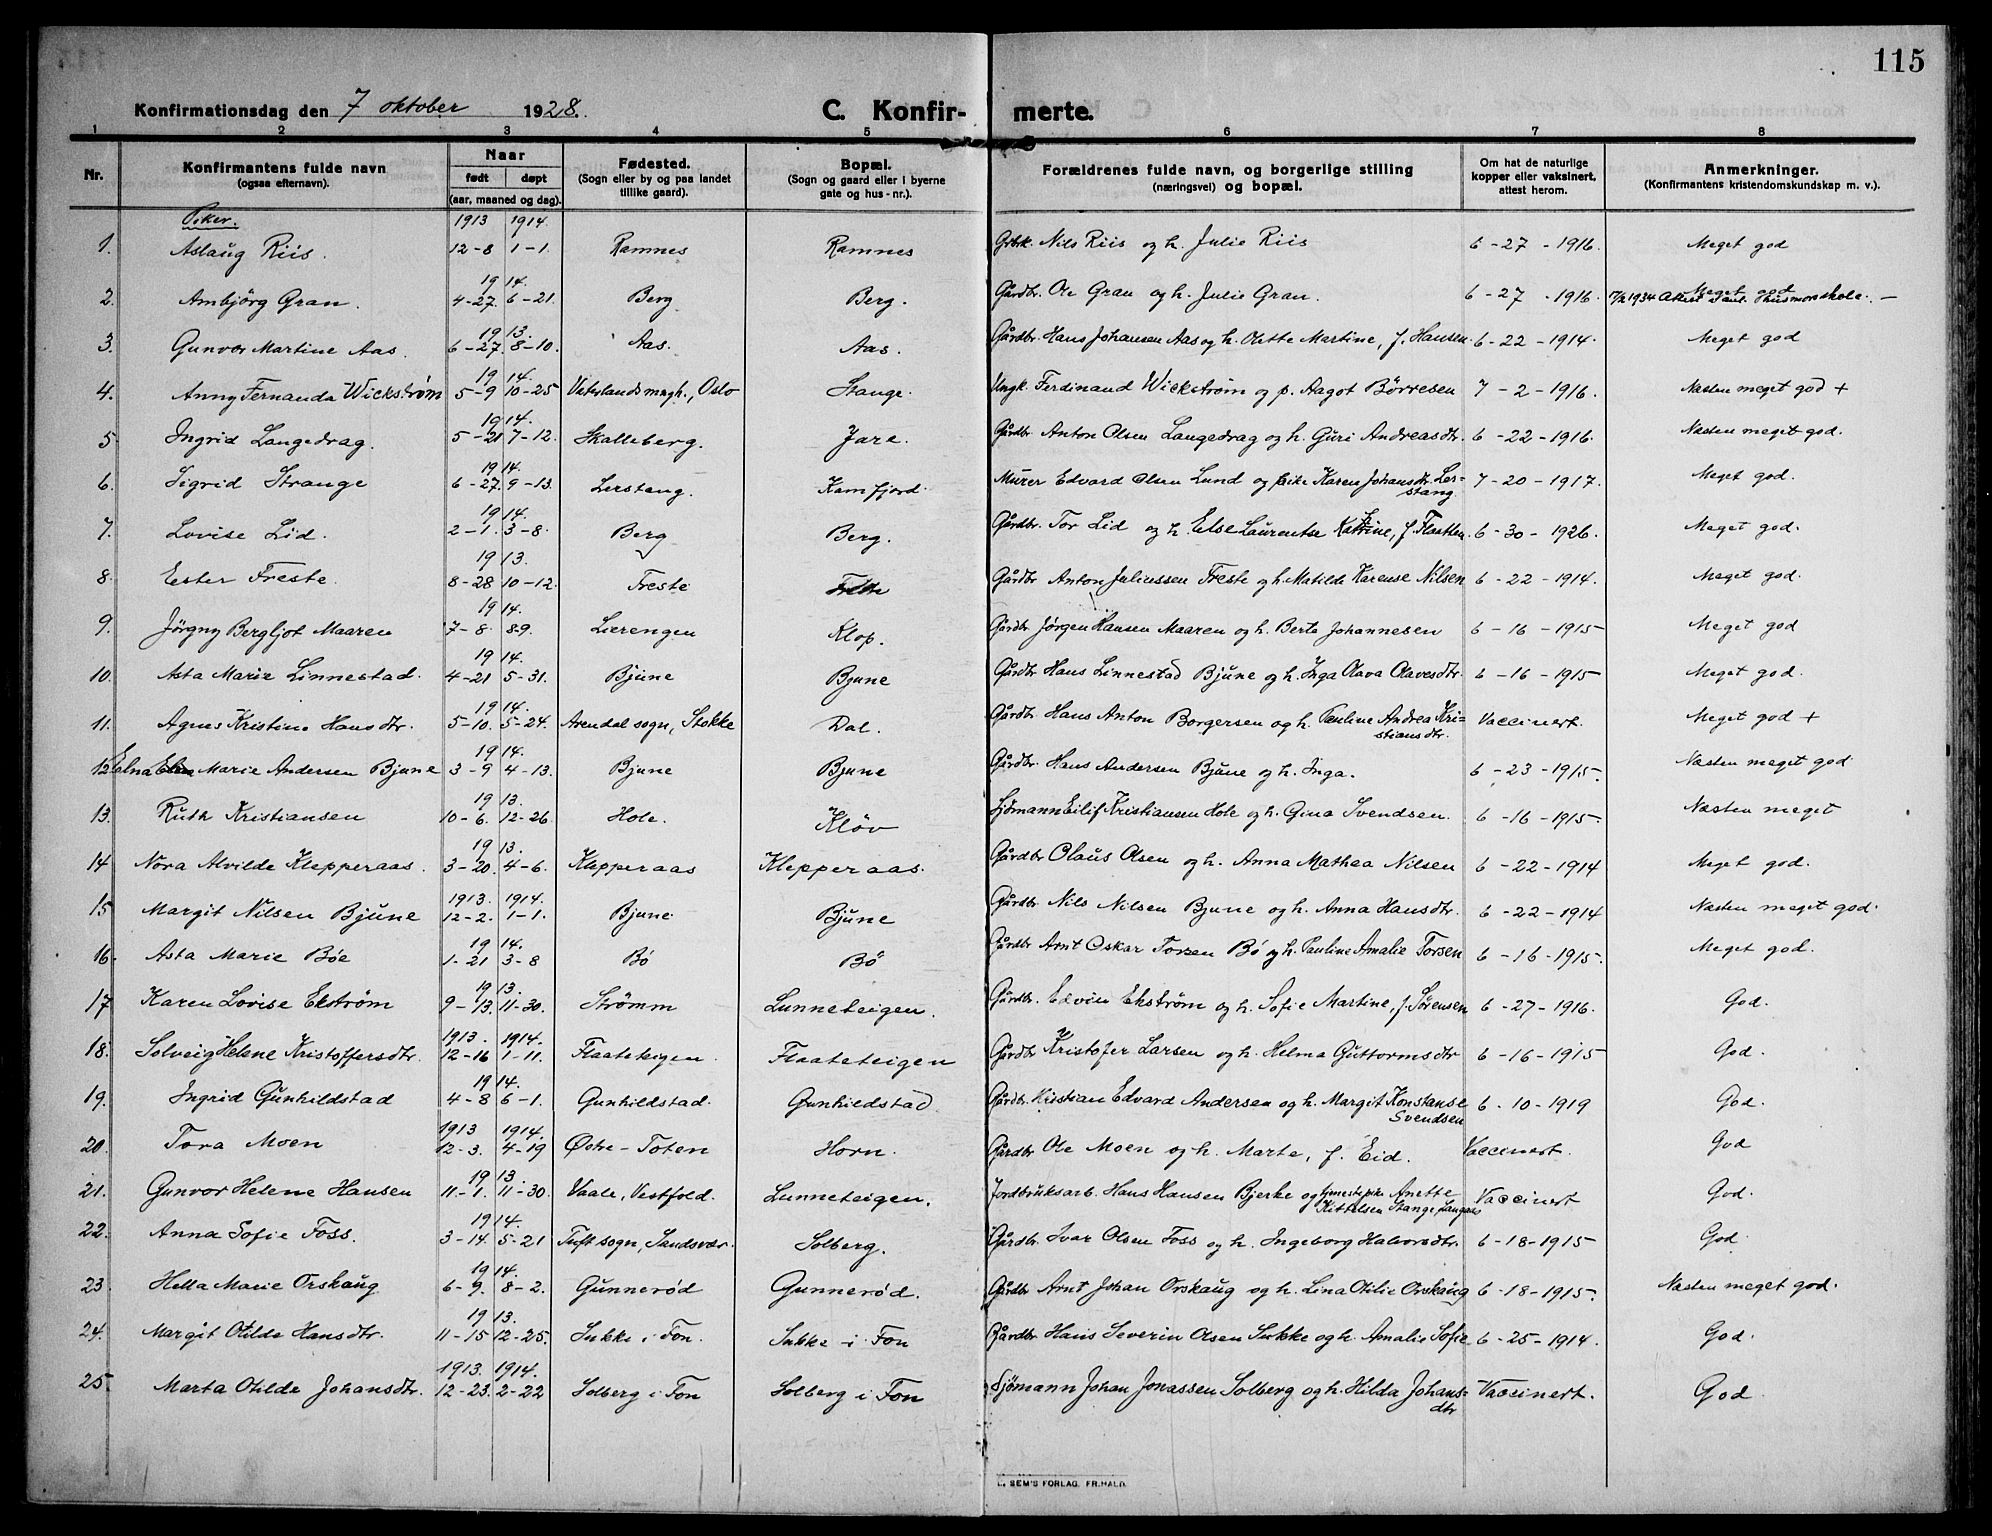 115
Konfirmationsdag den 7 oktober 1928. C. Konfir- merte.
1 2 3 4 5 6 7 8
Nr. Konfirmantens fulde navn (ogsaa efternavn). Naar født døpt (aar, maaned og dag). Fødested. (Sogn eller by og paa landet tillike gaard). Bopæl. (Sogn og gaard eller i byerne gate og hus-nr.). Forældrenes fulde navn, og borgerlige stilling (næringsvei) og bopæl. Om hat de naturlige kopper eller vaksinert, attest herom. Anmerkninger. (Konfirmantens kristendomskundskap m. v.).
Piker. 1913 1914.
1. Aslaug Riis. 12-8 1-1. Ramnes Ramnes Grbrk. Nils Riis og h. Julie Riis 6-27-1916. Meget god
1914.
2. Ambjörg Gran. 4-27. 6-21. Berg Berg. Gårdbr. Ole Gran og h. Julie Gran. 6-27-1916. Meget god
1913.
3. Gunvor Martine Aas. 6-27. 8-10. Aas. Aas. Gårdbr. Hans Johansen Aas og h. Olette Martine, f. Hansen. 6-22-1914. Meget god
1914.
4. Anny Fernanda Wickstrøm 5-9 10-25 Vaterlands mngh., Oslo Stange. Ungk. Ferdinand Wickstrøm og p. Aagot Börresen 7-2-1916. Næsten meget god +
1914.
5. Ingrid Langedrag. 5-21 7-12. Skalleberg. Jare. Gårdbr. Anton Olsen Langedrag og h. Guri Andreasdtr. 6-22-1916. Næsten meget god.
1914.
6. Sigrid Strange 6-27. 9-13. Lerstang. Kamfjord. Murer Edvard Olsen Lund og pike Karen Johansdtr. Ler- 7-20-1917. Meget god.
stang.
1914.
7. Lovise Lid. 2-1. 3-8. Berg Berg. Gårdbr. Tor Lid og h. Else Laurentse Katrine, f. Flaatten. 6-30-1926. Meget god.
1913.
8. Ester Freste. 8-28 10-12. Freste Gårdbr Anton Juliussen Freste og h. Matilde Karense Nilsen 6-22-1914. Meget god.
1914.
9. Jörgny Bergljot Maaren 7-8. 8-9. Lierengen Klop. Gårdbr. Jørgen Hansen Maaren og h. Berta Johannesen 6-16-1915 Meget god
1914.
10. Asta Marie Linnestad. 4-21 5-31. Bjune Bjune Gårdbr Hans Linnestad Bjune og h. Inga Olava Olavesdtr. 6-16-1915 Meget god.
1914.
11. Agnes Kristine Hansdtr. 5-10. 5-24. Arendal sogn, Stokke Dal. Gårdbr. Hans Anton Borgersen og h. Pauline Andrea Kri- Vaccinert. Meget god +
stiansdtr.
1914.
12. Elna Marie Andersen Bjune 3-9 4-13. Bjune Bjune Gårdbr. Hans Andersen Bjune og h. Inga. 6-23-1915. Næsten meget god
1913.
13. Ruth Kristiansen 10-6. 12-26. Hole. Kløv Sjömann Eilif Kristiansen Hole og h. Gina Svendsen. 6-16-1915. Næsten meget
1913.
14 Nora Alvilde Klepperaas. 3-20. 4-6. Klepperaas Klepperaas. Gårdbr Olaus Olsen og h. Anna Mathea Nilsen 6-22-1914 Meget god.
1913. 1914.
15 Margit Nilsen Bjune 12-2. 1-1. Bjune. Bjune Gårdbr. Nils Nilsen Bjune og h. Anna Hansdtr. 6-22-1914 Næsten meget god.
1914.
16. Asta Marie Böe 1-21 3-8 Bö Bö Gårdbr. Arnt Oskar Torsen Bö og h. Pauline Amalie Torsen 6-16-1915. Meget god.
1913.
17 Karen Lovise Ekström 9-13. 11-30. Strömm Lunneteigen. Gårdbr. Edvin Ekström og h. Sofie Martine, f. Sørensen 6-27-1916. God.
1913. 1914.
18. Solveig Helene Kristoffersdtr. 12-16 1-11. Flaateteigen. Flaateteigen Gårdbr Kristofer Larsen og h. Helma Guttormsdtr 6-16-1915 God.
1914.
19. Ingrid Gunhildstad 4-8 6-1. Gunhildstad. Gunhildstad. Gårdbr. Kristian Edvard Andersen og h. Margit Konstanse 6-10-1919 God.
Svendsen
1913 1914.
20. Tora Moen 12-3. 4-19 Østre-Toten Horn. Gårdbr Ole Moen og h. Marte, f. Eid. Vaccinert. God
1913.
21. Gunvor Helene Hansen 11-1. 11-30. Vaale, Vestfold. Lunneteigen. Jordbruksarb. Hans Hansen Bjerke og tjenestepike Anette Vaccinert God.
Kittelsen Stange
1914.
22. Anna Sofie Foss. 3-14. 5-21 Tuft sogn, Sandsvær. Solberg. Gårdbr. Ivar Olsen Foss og h. Ingeborg Halvorsdtr. 6-18-1915 God.
1914.
23 Hella Marie Orskaug 6-9. 8-2. Gunnerød Gunnerød. Gårdbr Arnt Johan Orskaug og h. Lina Otilie Orskaug 6-18-1915. Næsten meget god.
1913.
24. Margit Otilde Hansdtr. 11-15 12-25. Sukke i Fon. Sukke i Fon Gårdbr. Hans Severin Olsen Sukke og h. Amalie Sofie 6-25-1914. God.
1913. 1914.
25. Marta Otilde Johansdtr. 12-23. 2-22 Solberg i Fon Solberg i Fon Sjømann Johan Jonassen Solberg og h. Hilda Johans- Vaccinert. God
dtr
SEM'S FORLAG. FR.HALD.